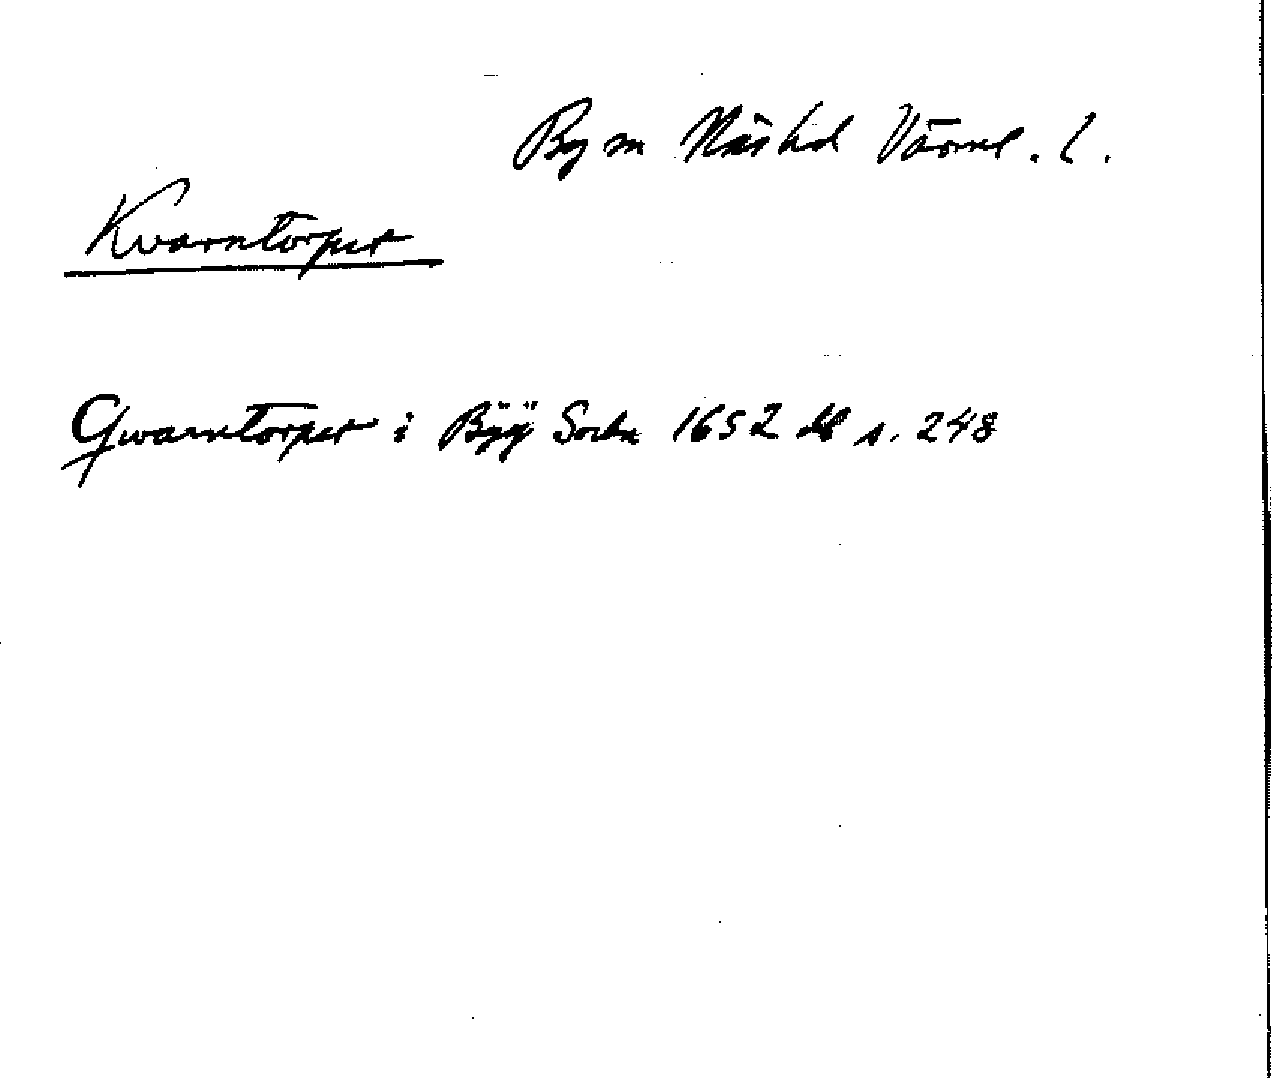 By sn Näs hd Värml. l.
Kvarntorpet
Qwarntorpet i Bÿÿ Sockn 1652 db s. 248